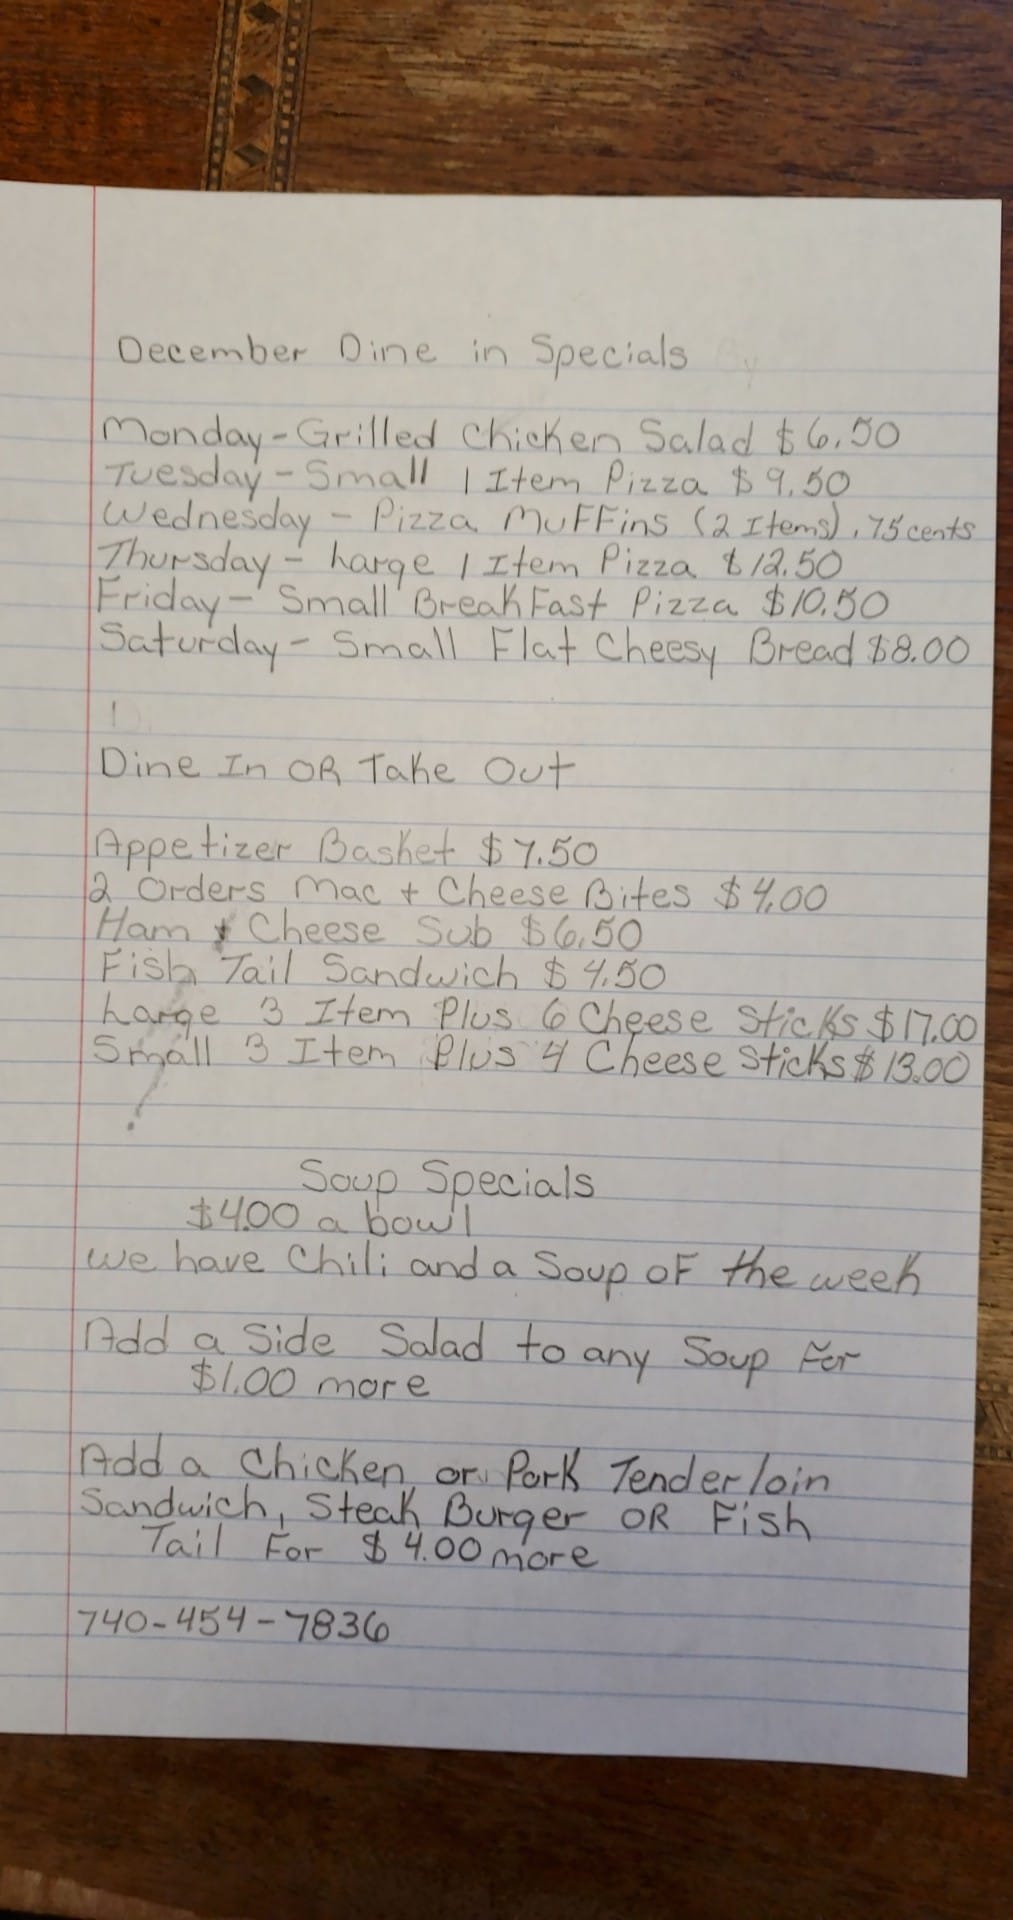 December Dine in Specials
Monday-Grilled Chicken Salad $6.50
Tuesday-Small 1 Item Pizza $9.50
Wednesday - Pizza Muffins (2 Items) .75 cents
Thursday- Large 1 Item Pizza $12.50
Friday- Small Breakfast Pizza $10.50
Saturday- Small Flat Cheesy Bread $8.00
Dine In OR Take Out
Appetizer Basket $7.50
2 Orders Mac + Cheese Bites $4.00
Ham + Cheese Sub $6.50
Fish Tail Sandwich $4.50
Large 3 Item Plus 6 Cheese Sticks $17.00
Small 3 Item Plus 4 Cheese Sticks $13.00
Soup Specials
$4.00 a bowl
we have Chili and a Soup of the week
Add a Side Salad to any Soup For
$1.00 more
Add a Chicken or Pork Tenderloin
Sandwich, Steak Burger OR Fish
Tail For $4.00 more
740-454-7836